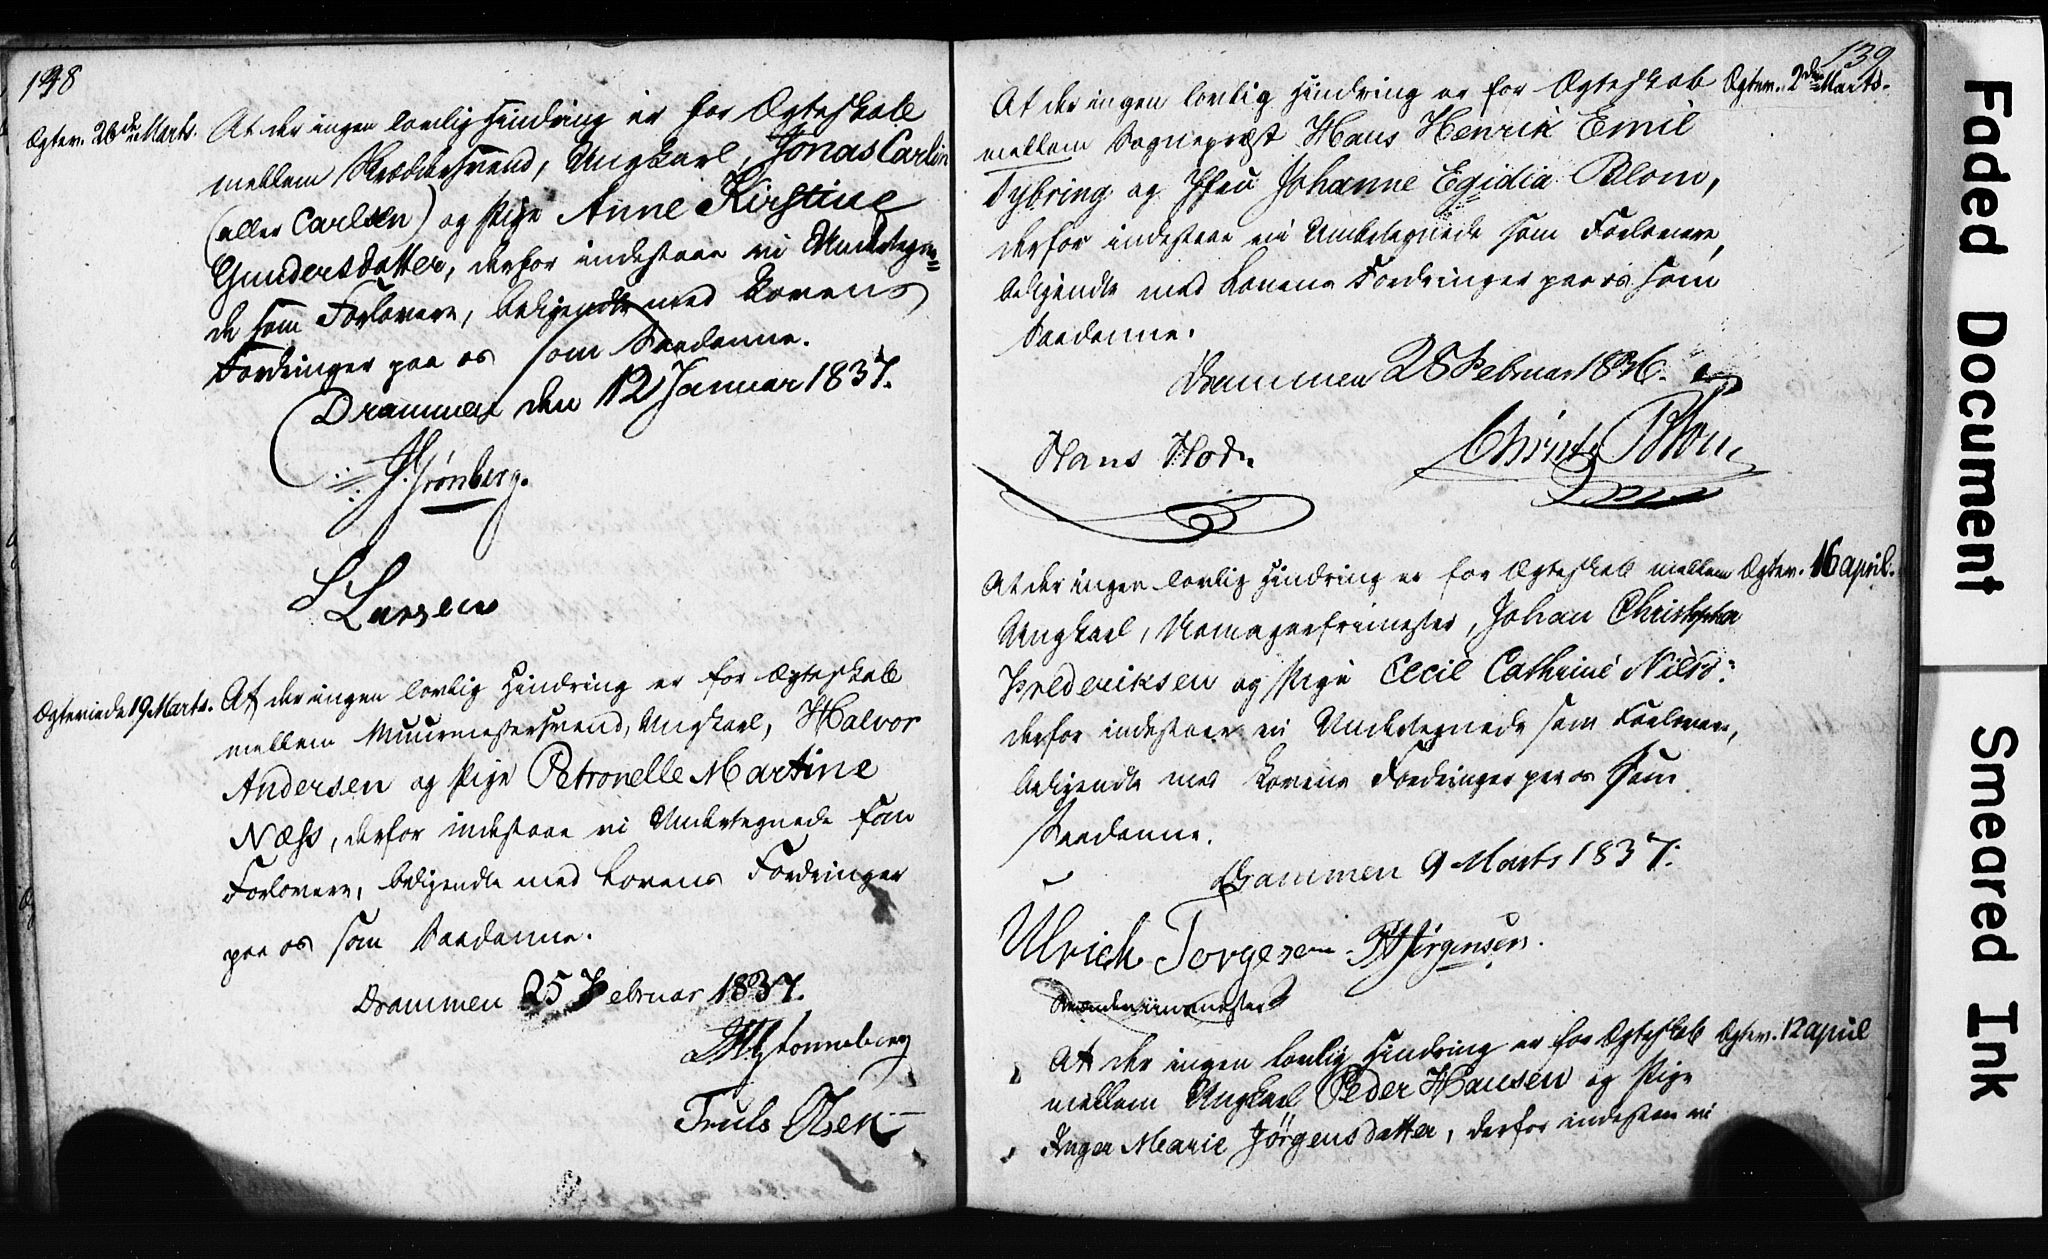 138
Ægtev. 26de Marts.
At der ingen lovlig Hindring er for Ægteskab
mellem Skrædersvend, Ungkarl, Jonas Carlin
(eller Carlsen) og Pige Anne Kirstine
Gundersdatter, derfor indestaae vi Undertegne=
de som Forlovere, bekjendte med Lovens
Fordringer paa os som Saadanne.
Drammen den 12 Januar 1837.
Grønberg.
S Larsen
Ægteviede 19 Marts.
At der ingen lovlig Hindring er for Ægteskab
mellem Muurmestersvend, Ungkarl, Halvor
Andersen og Pige Petronelle Martine
Næss, derfor indestaae vi Undertegnede som
Forlovere, bekjendte med Lovens Fordringer
paa os som Saadanne.
Drammen 25 Februar 1837.
Truls Olsen
139
At der ingen lovlig Hindring er for Ægteskab
Ægtev. 2den Marts.
mellem Sognepræst Hans Henrik Emil
Tybring og Jfru Johanne Egidia Blom,
derfor indestaae vi Undertegnede som Forlovere,
bekjendte med Lovens Fordringer paa os som
Saadanne.
Drammen 28 Februar 1836.
Hans Christ Blom
At der ingen lovlig Hindring er for Ægteskab mellem
Ægtev. 16 april.
Ungkarl, Johan Christopher
Frederiksen og Pige Cecil Cathrine Nilsd:
derfor indestaae vi Undertegnede som Forlovere,
bekjendte med Lovens Fordringer paa os som
Saadanne.
Drammen 9 Marts 1837.
Ulrich Torgesen Jørgensen.
At der ingen lovlig Hindring er for Ægteskab
Ægtev. 12 april
mellem Ungkarl Peder Hansen og Pige
Inger Marie Jørgensdatter, derfor indestaae vi
Faded Document
Smeared Ink